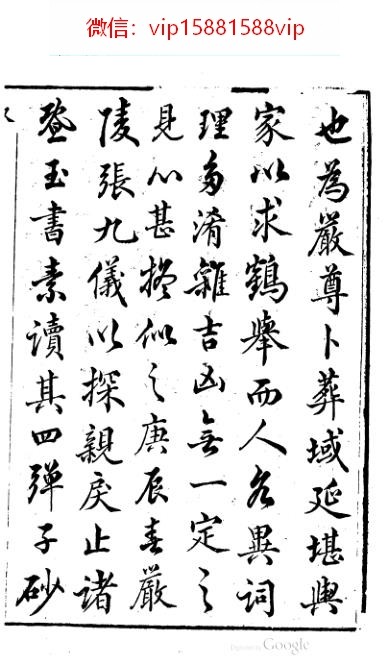 微信：vip15881588vip
也為嚴尊卜葬域延堪輿
家以求鶴舉而人各異詞
理多淆雜吉凶無一定之
見心甚擬似之庚辰春嚴
陵張九儀以探親戾止諸
暨玉書素讀其四彈子砂
Digitized by Google